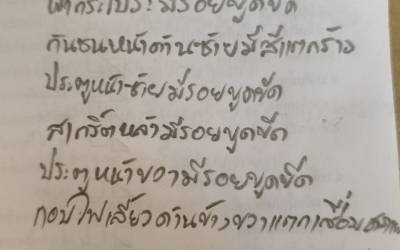 ฝากระโปรงมีรอยขูดขีด
กันชนหน้าด้านซ้ายมีสีแตกร้าว
ประตูหน้าซ้ายมีรอยขูดขีด
สเกิร์ตหลังมีรอยขูดขีด
ประตูหน้าขวามีรอยขูดขีด
กอบไฟเลี้ยวด้านข้างขวาแตกเสื่อม